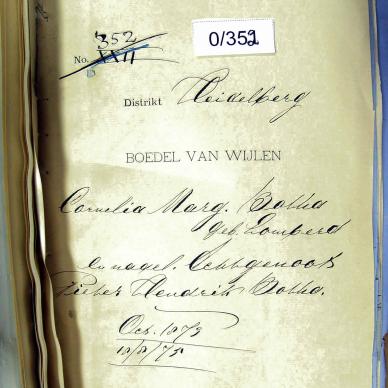 352
0/352
No. XXII
Distrikt Heidelberg
BOEDEL VAN WIJLEN
Cornelia Marg. Botha
geb. Lombard
en nagel. Echtgenoot
Pieter Hendrik Botha.
Oct. 1873